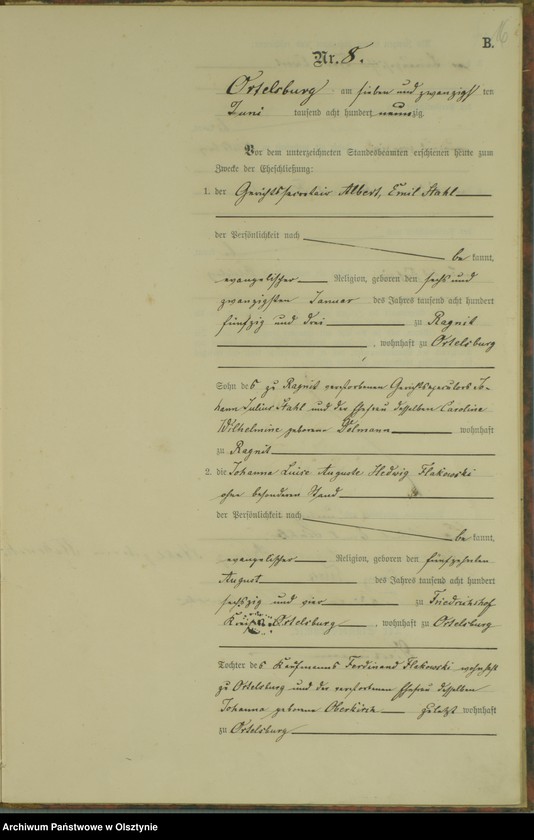 B.
Nr. 8.
Ortelsburg am sieben und zwanzigsten
Juni tausend acht hundert neunzig
Vor dem unterzeichneten Standesbeamten erschienen heute zum
Zwecke der Eheschließung:
1. der Gerichtssecretair Albert, Emil Stahl
der Persönlichkeit nach
be kannt,
evangelischer Religion, geboren den sechs und
zwanzigsten Januar des Jahres tausend acht hundert
fünfzig und drei zu Ragnit
, wohnhaft zu Ortelsburg
Sohn des zu Ragnit verstorbenen Jo-
hann Julius Stahl und der Ehefrau desselben Caroline
Wilhelmine geborene wohnhaft
zu Ragnit
2. die Johanna Luise Auguste Hedwig Flakowski
ohne besonderen Stand
der Persönlichkeit nach
be kannt,
evangelischer Religion, geboren den fünfzehnten
August des Jahres tausend acht hundert
sechszig und vier zu Friedrichshof
Kreis Ortelsburg, wohnhaft zu Ortelsburg
Tochter des Kaufmanns Ferdinand Flakowski wohnhaft
zu Ortelsburg und der verstorbenen Ehefrau desselben
Johanna geborene Oberkirch zuletzt wohnhaft
zu Ortelsburg
Archiwum Państwowe w Olsztynie